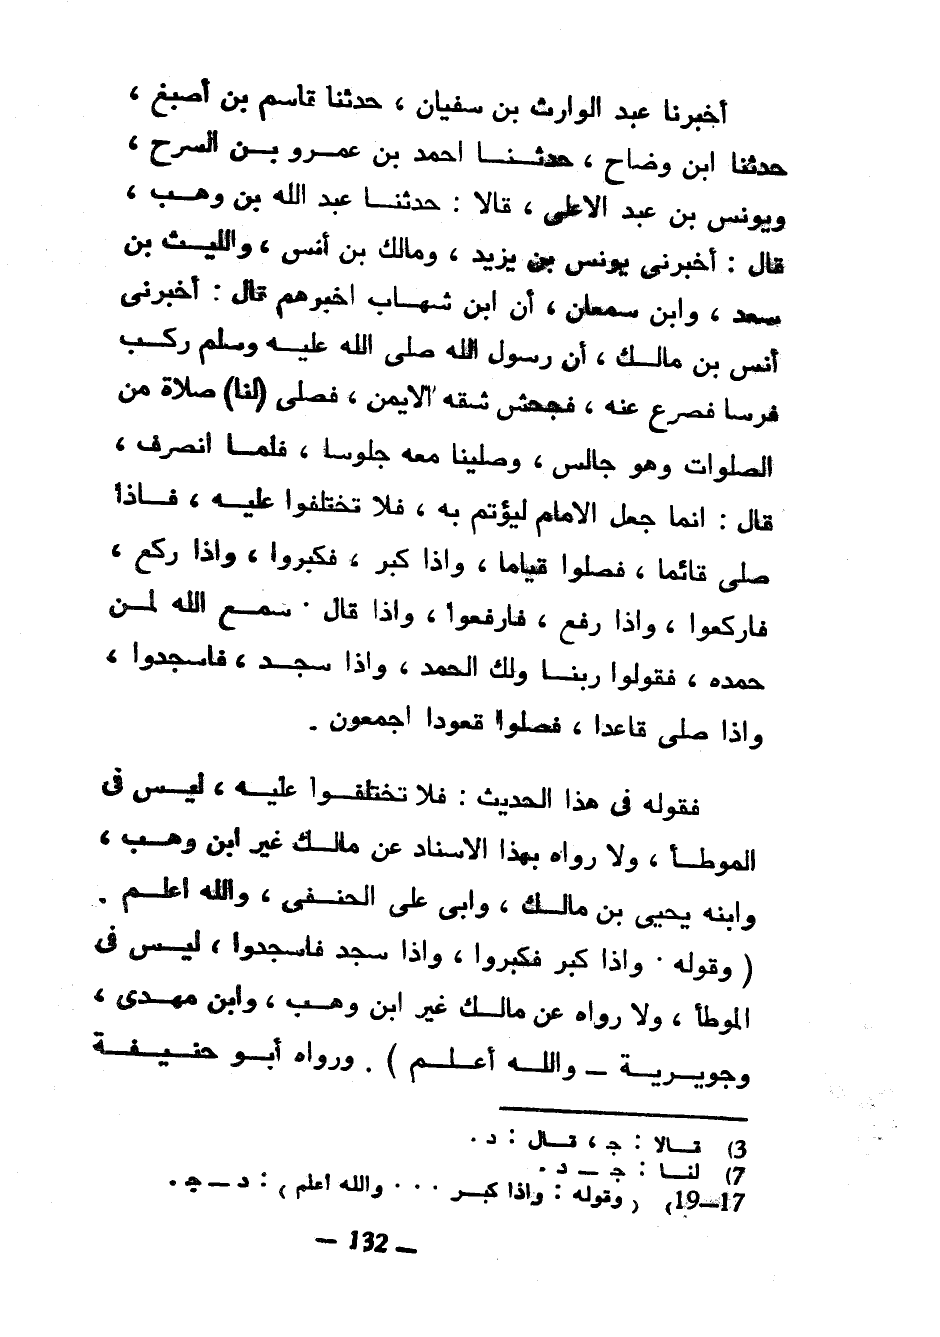 أخبرنا عبد الوارث بن سفيان ، حدثنا قاسم بن أصبغ ،
حدثنا ابن وضاح ، حدثنا احمد بن عمرو بن السرح ،
ويونس بن عبد الاعلى ، قالا : حدثنا عبد الله بن وهب ،
قال : أخبرنى يونس بن يزيد ، ومالك بن أنس ، والليث بن
سعد ، وابن سمعان ، أن ابن شهاب اخبرهم قال : أخبرنى
أنس بن مالك ، أن رسول الله صلى الله عليه وسلم ركب
فرسا فصرع عنه ، فجحش شقه الايمن ، فصلى (لنا) صلاة من
الصلوات وهو جالس ، وصلينا معه جلوسا ، فلما انصرف ،
قال : انما جعل الامام ليؤتم به ، فلا تختلفوا عليه ، فاذا
صلى قائما ، فصلوا قياما ، واذا كبر ، فكبروا ، واذا ركع ،
فاركعوا ، واذا رفع ، فارفعوا ، واذا قال · سمع الله لمن
حمده ، فقولوا ربنا ولك الحمد ، واذا سجد ، فاسجدوا ،
واذا صلى قاعدا ، فصلوا قعودا اجمعون .
فقوله فى هذا الحديث : فلا تختلفوا عليه ، ليس فى
الموطأ ، ولا رواه بهذا الاسناد عن مالك غير ابن وهب ،
وابنه يحيى بن مالك ، وابى على الحنفى ، والله اعلم .
( وقوله · واذا كبر فكبروا ، واذا سجد فاسجدوا ، ليس فى
الموطأ ، ولا رواه عن مالك غير ابن وهب ، وابن مهدى ،
وجويرية ــ والله أعلم ) . ورواه أبو حنيفة
3) قالا : ج ، قال : د .
7) لنا : ج ــ د .
17ــ19) ( وقوله : واذا كبر . . . والله اعلم ) : د ــ ج .
ــ 132 ــ